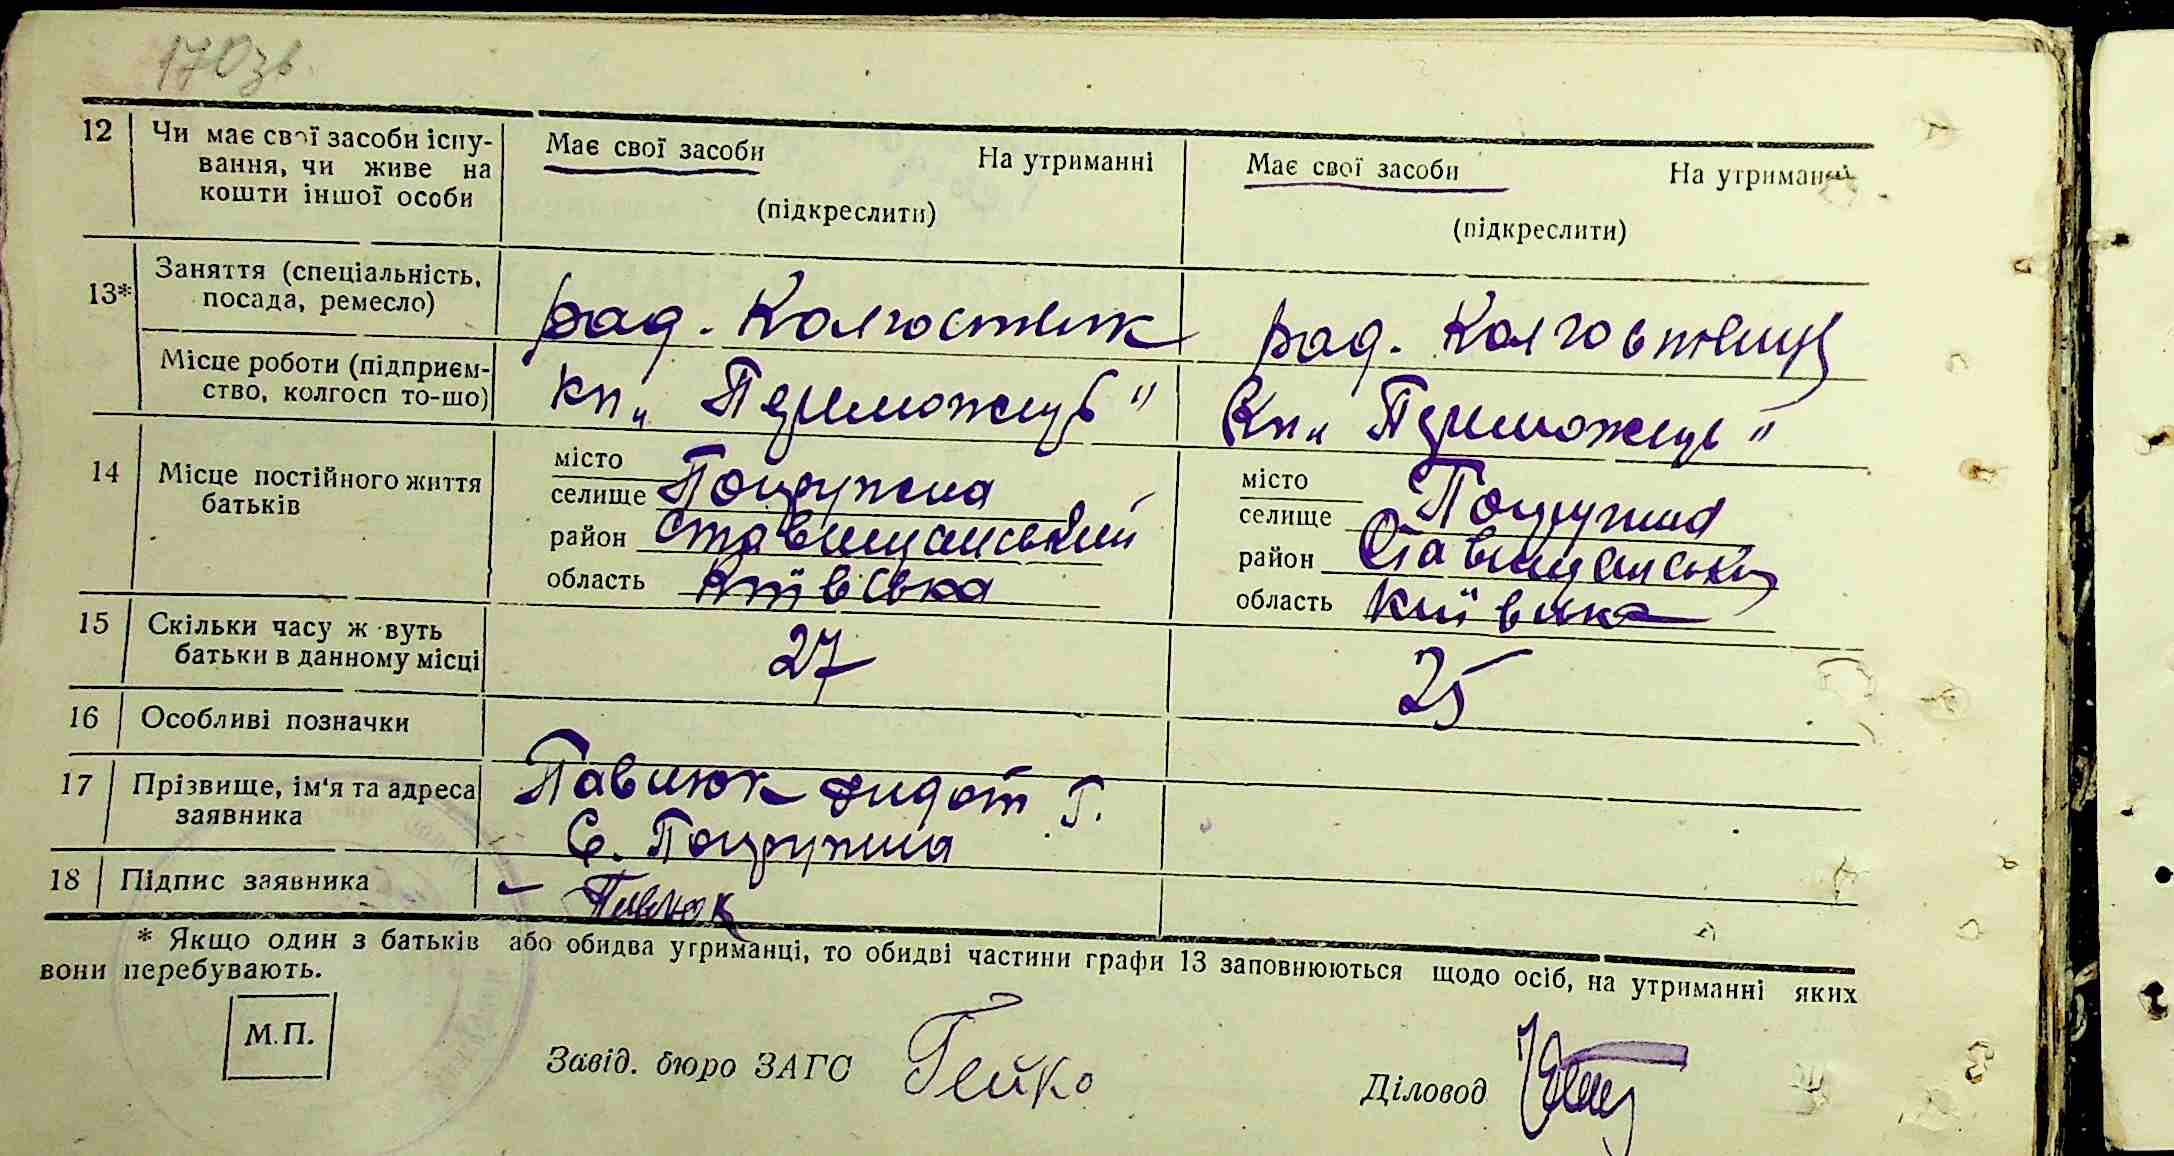 170зв
12 Чи має свої засоби існу- Має свої засоби На утриманні Має свої засоби На утриманні
вання, чи живе на
кошти іншої особи (підкреслити) (підкреслити)
13* Заняття (спеціальність,
посада, ремесло) рад. Колгоспник рад. Колгоспниця
Місце роботи (підприєм-
ство, колгосп то-що) кп „Переможець" Кп „Переможець"
14 Місце постійного життя
батьків
місто місто
селище Поцружна селище Поцружна
район Ставищанський район Ставищанськ
область Київська область Київська
15 Скільки часу ж вуть
батьки в данному місці 27 25
16 Особливі позначки
17 Прізвище, ім'я та адреса
заявника Павлюк Федот Г.
С. Поцружна
18 Підпис заявника Павлюк
* Якщо один з батьків або обидва утриманці, то обидві частини графи 13 заповнюються щодо осіб, на утриманні яких
вони перебувають.
М.П.
Завід. бюро ЗАГС Гейко Діловод